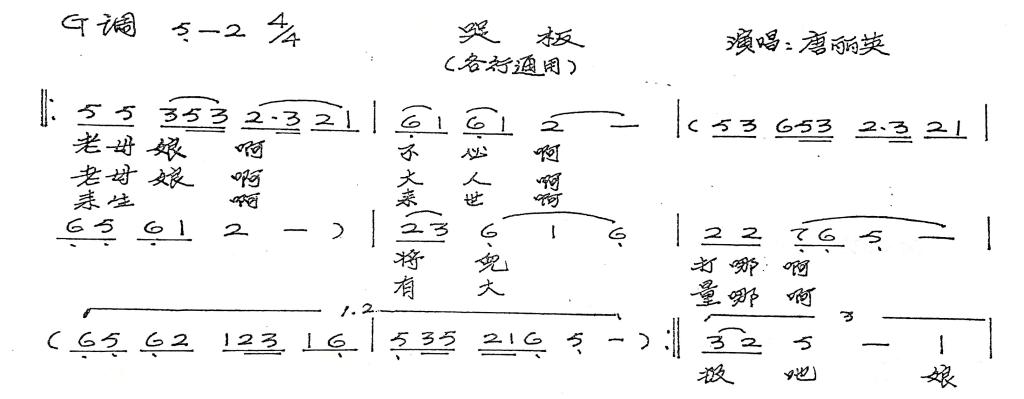 G调 5̣—2 4/4 哭板 演唱:唐丽英
(各行通用)
‖: 5 5 353 2·3 21 | 61 61 2 — | ( 53 653 2·3 21 |
老母娘 啊 不 必 啊
老母娘 啊 大 人 啊
来生 啊 来 世 啊
6̣5̣ 6̣1 2 — ) | 23 6̣ 1 6̣ | 22 7̣6̣ 5̣ — |
将 儿 打哪 啊
有 大 量哪 啊
1.2 3
( 6̣5̣ 6̣2 123 16̣ | 5̣35 216̣ 5̣ — ) :‖ 32 5 — 1 |
报 她 娘